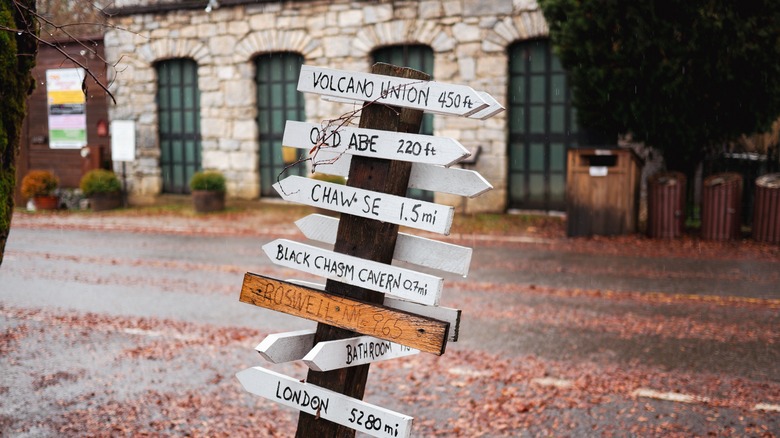 VOLCANO UNION 450ft
OLD ABE 220ft
CHAW·SE 1.5mi
BLACK CHASM CAVERN 0.7mi
ROSWELL·NM 765
BATHROOM
LONDON 5280mi